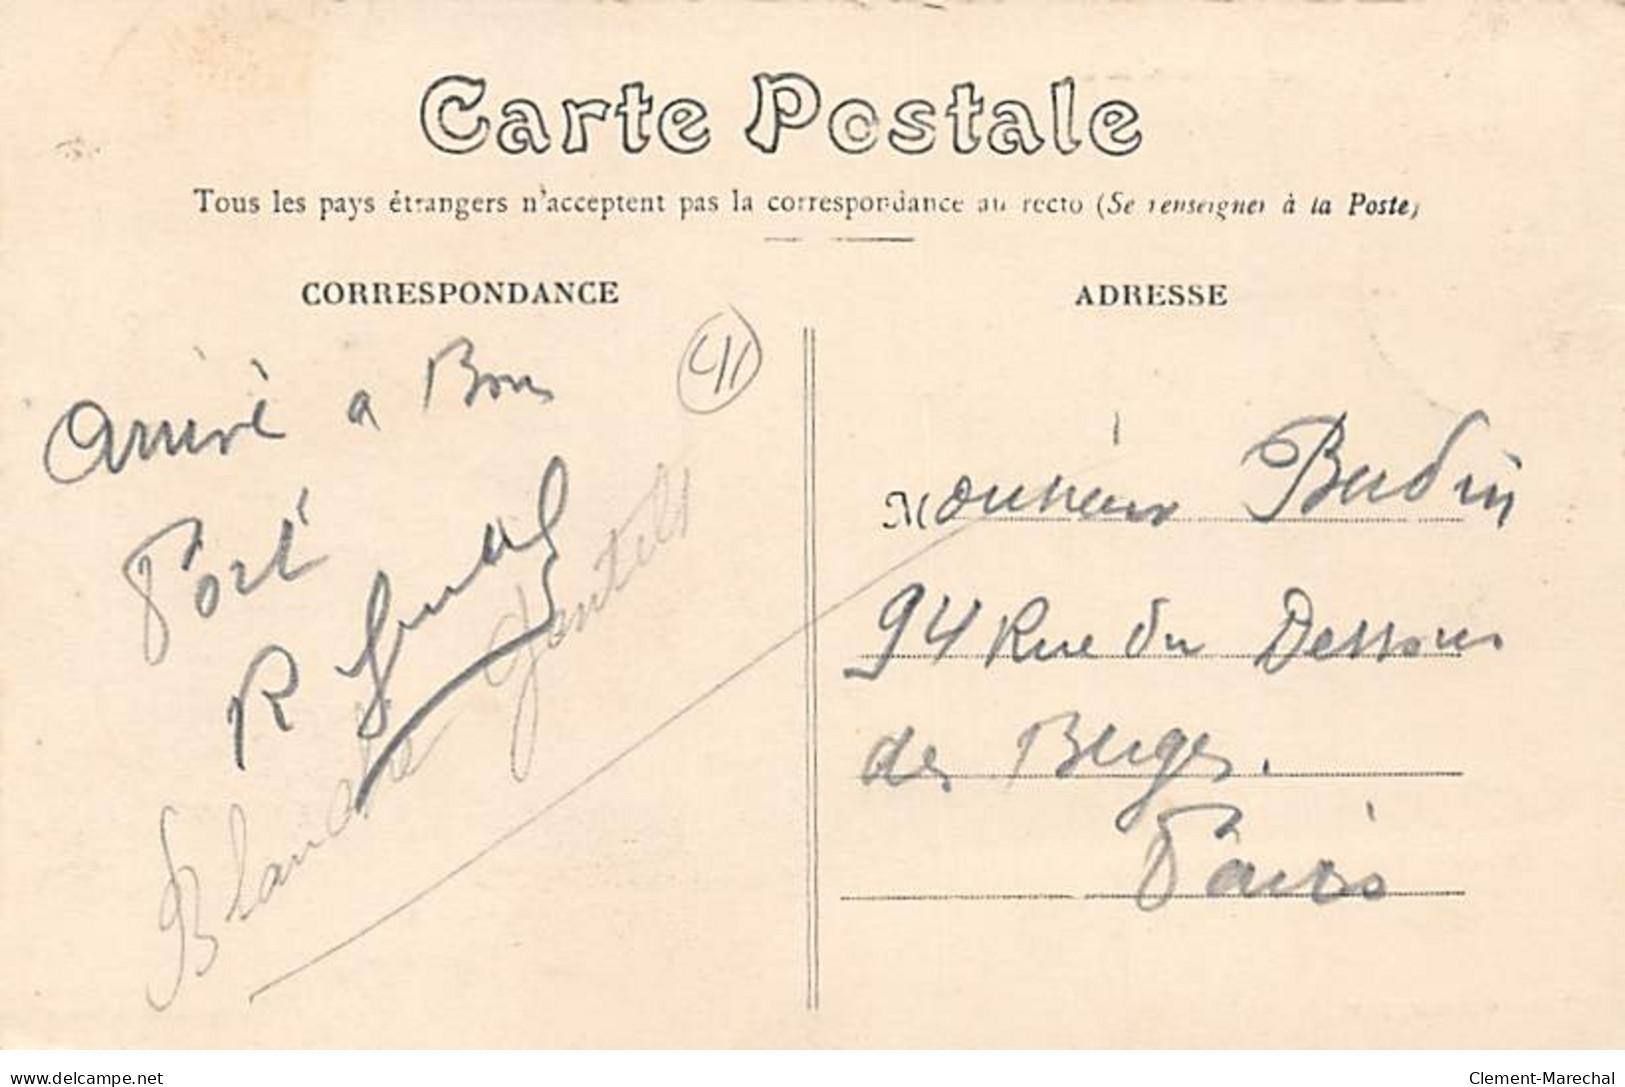 Carte Postale
Tous les pays étrangers n'acceptent pas la correspondance au recto (Se renseigner à la Poste)
CORRESPONDANCE
ADRESSE
41
Arrivé a Bon
Port
R
Blanche Gentils
Monsieur Budin
94 Rue du Dessous
des Berges.
Paris
www.delcampe.net
Clement-Marechal